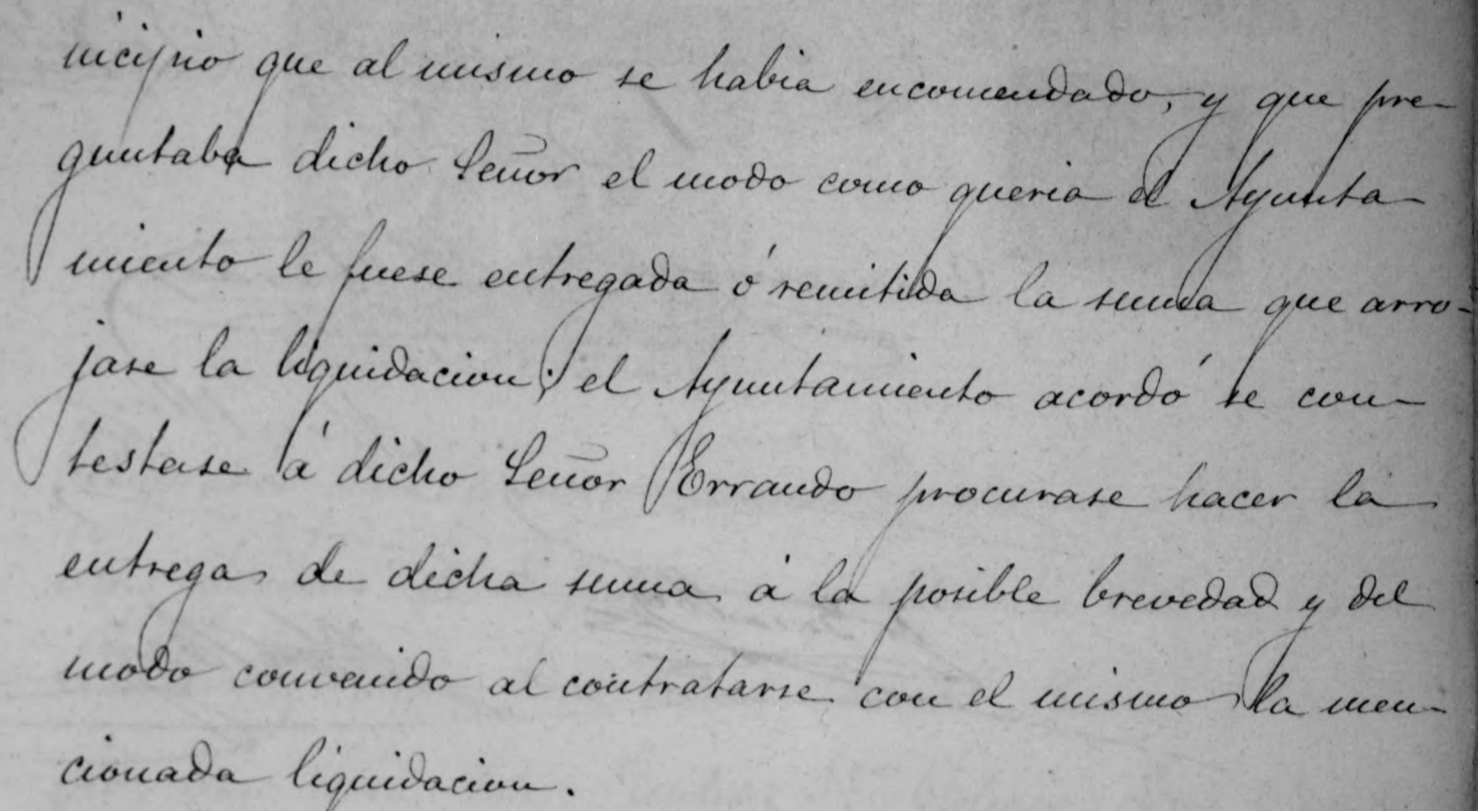 nicipio que al mismo se habia encomendado, y que pre-
guntaba dicho Señor el modo como queria el Ayunta-
miento le fuese entregada ó remitida la suma que arro-
jase la liquidacion; el Ayuntamiento acordó se con-
testase á dicho Señor Errando procurase hacer la
entrega de dicha suma á la posible brevedad y del
modo convenido al contratarse con el mismo la men-
cionada liquidacion.